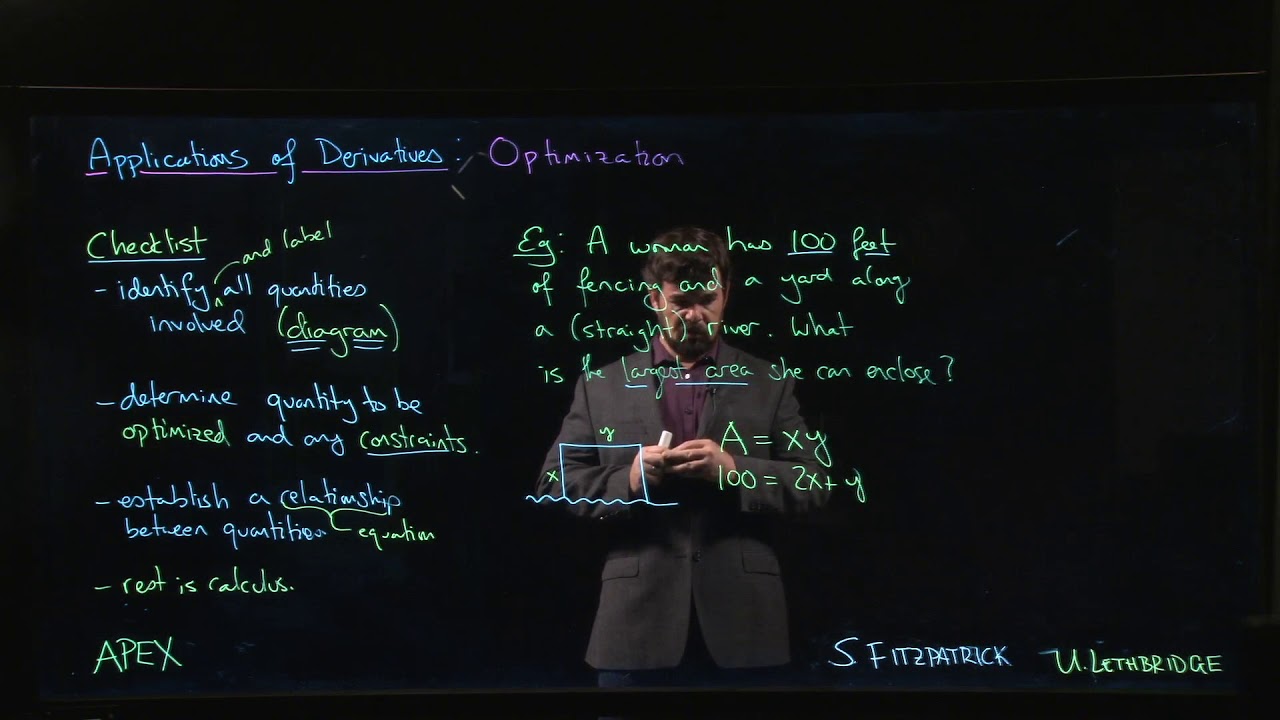 Applications of Derivatives: Optimization
Checklist
and label
- identify all quantities
involved (diagram)
- determine quantity to be
optimized and any constraints.
- establish a relationship
between quantities
equation
- rest is calculus.
APEX
Eg: A woman has 100 feet
of fencing and a yard along
a (straight) river. What
is the largest area she can enclose?
y
x
A = xy
100 = 2x + y
S. FITZPATRICK
U. LETHBRIDGE